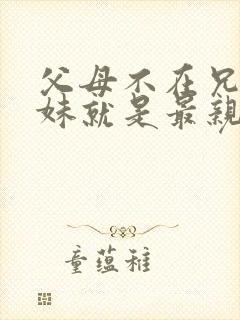 父母不在兄
妹就是最親
童蕴稚